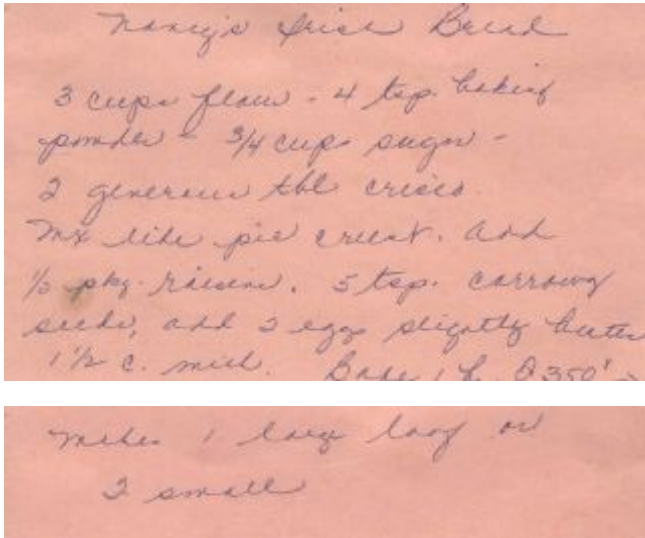 Nancy's Irish Bread
3 cups flour - 4 tsp. baking
powder - 3/4 cups sugar -
2 generous tbl crisco.
Mx like pie crust. Add
1/2 pkg. raisins. 5 tsp. carrawy
seeds, add 2 eggs slightly beaten
1 1/2 c. milk. Bake 1 h. @ 350°
Makes 1 large loaf or
2 small